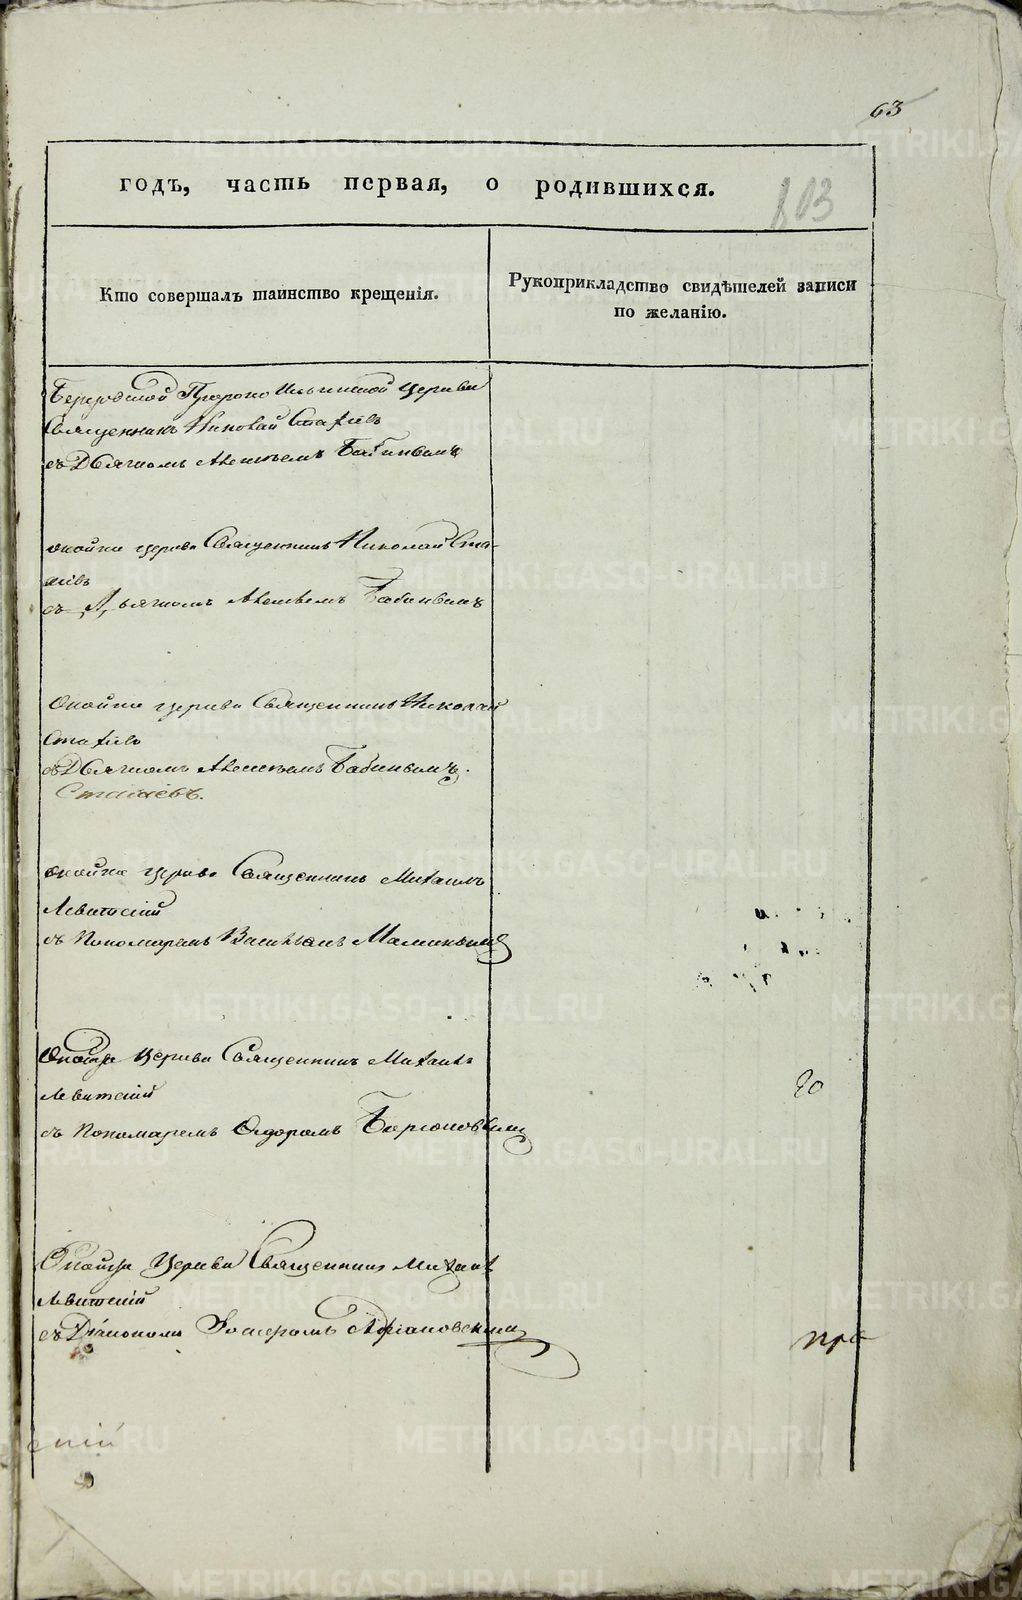 63
годъ, часть первая, о родившихся.
803
Кто совершалъ таинство крещенія.
Рукоприкладство свидѣтелей записи
по желанію.
Пророко Ильинской Церкви
Священникъ Николай Стахіевъ
съ Дьячкомъ Алексѣемъ Бабинымъ
оной же церкви Священникъ Николай Ста-
хіевъ
съ Дьячкомъ Алексѣемъ Бабинымъ
Оной же церкви Священникъ Николай
Стахіевъ
съ Дьячкомъ Алексѣемъ Бабинымъ.
оной же церкви Священникъ Михаилъ
Левитскій
съ Пономаремъ Васильемъ
Оной же Церкви Священникъ Михаилъ
Левитскій
съ Пономаремъ Ѳедоромъ
Оной же Церкви Священникъ Михаилъ
Левитскій
съ Діакономъ
METRIKI.GASO-URAL.RU